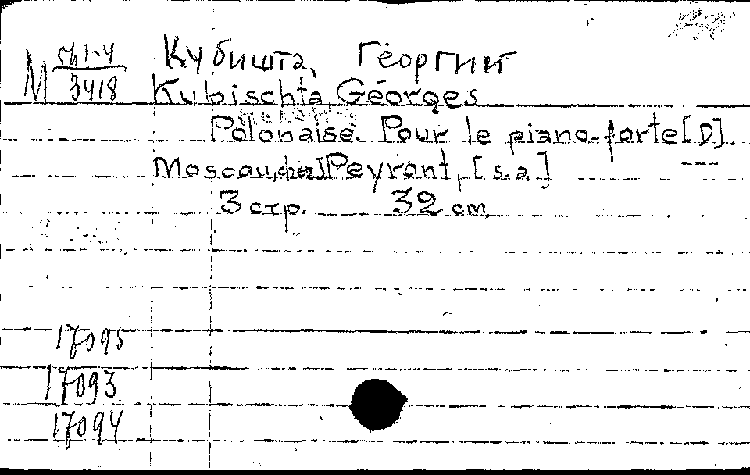 Кубишта, Георгий
М 561-4
3418
Kubischta, Georges
Polonaise. Pour le piano-forte [D].
Moscau, chez J Peyront, [s.a.]
3 стр. 32 cm
17095
17093
17094